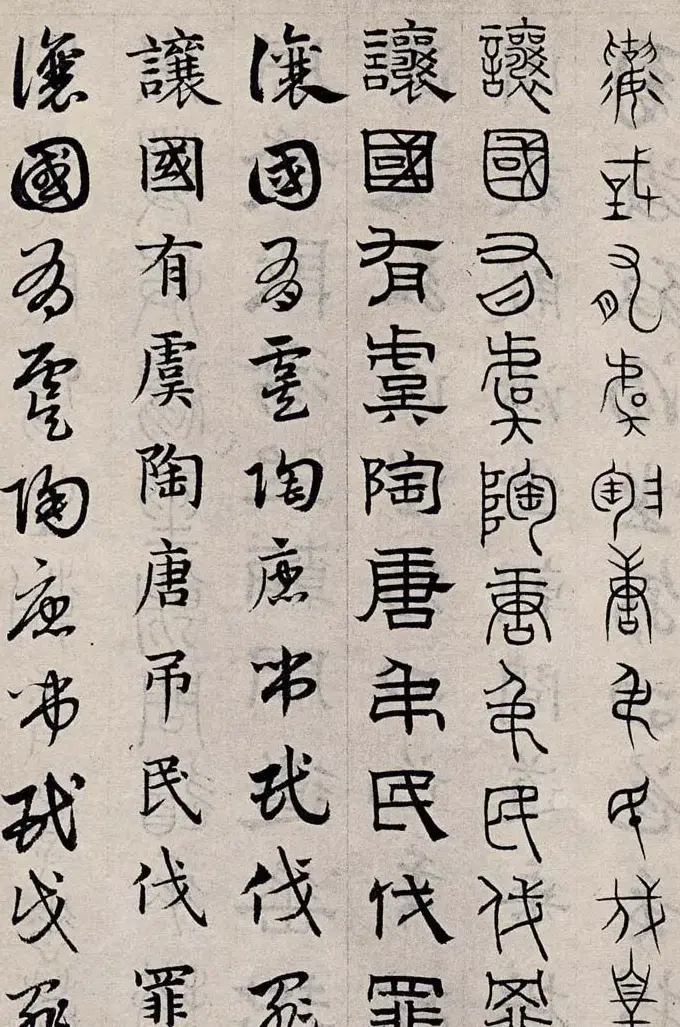 讓國有虞陶唐弔民伐辠
讓國有虞陶唐弔民伐罪
讓國有虞陶唐弔民伐罪
讓國有虞陶唐吊民伐罪
讓國有虞陶唐吊民伐罪
讓國有虞陶唐吊民伐罪